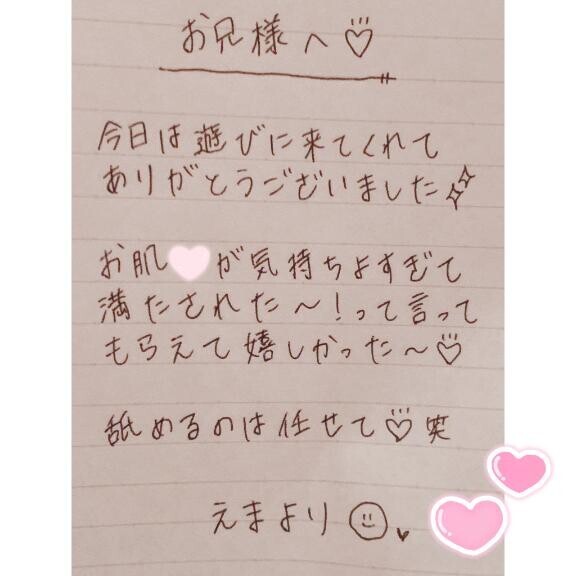 お兄様へ♡
今日は遊びに来てくれて
ありがとうございました
お肌♥が気持ちよすぎて
満たされた〜!って言って
もらえて嬉しかった〜♡
舐めるのは任せて♡笑
えまより